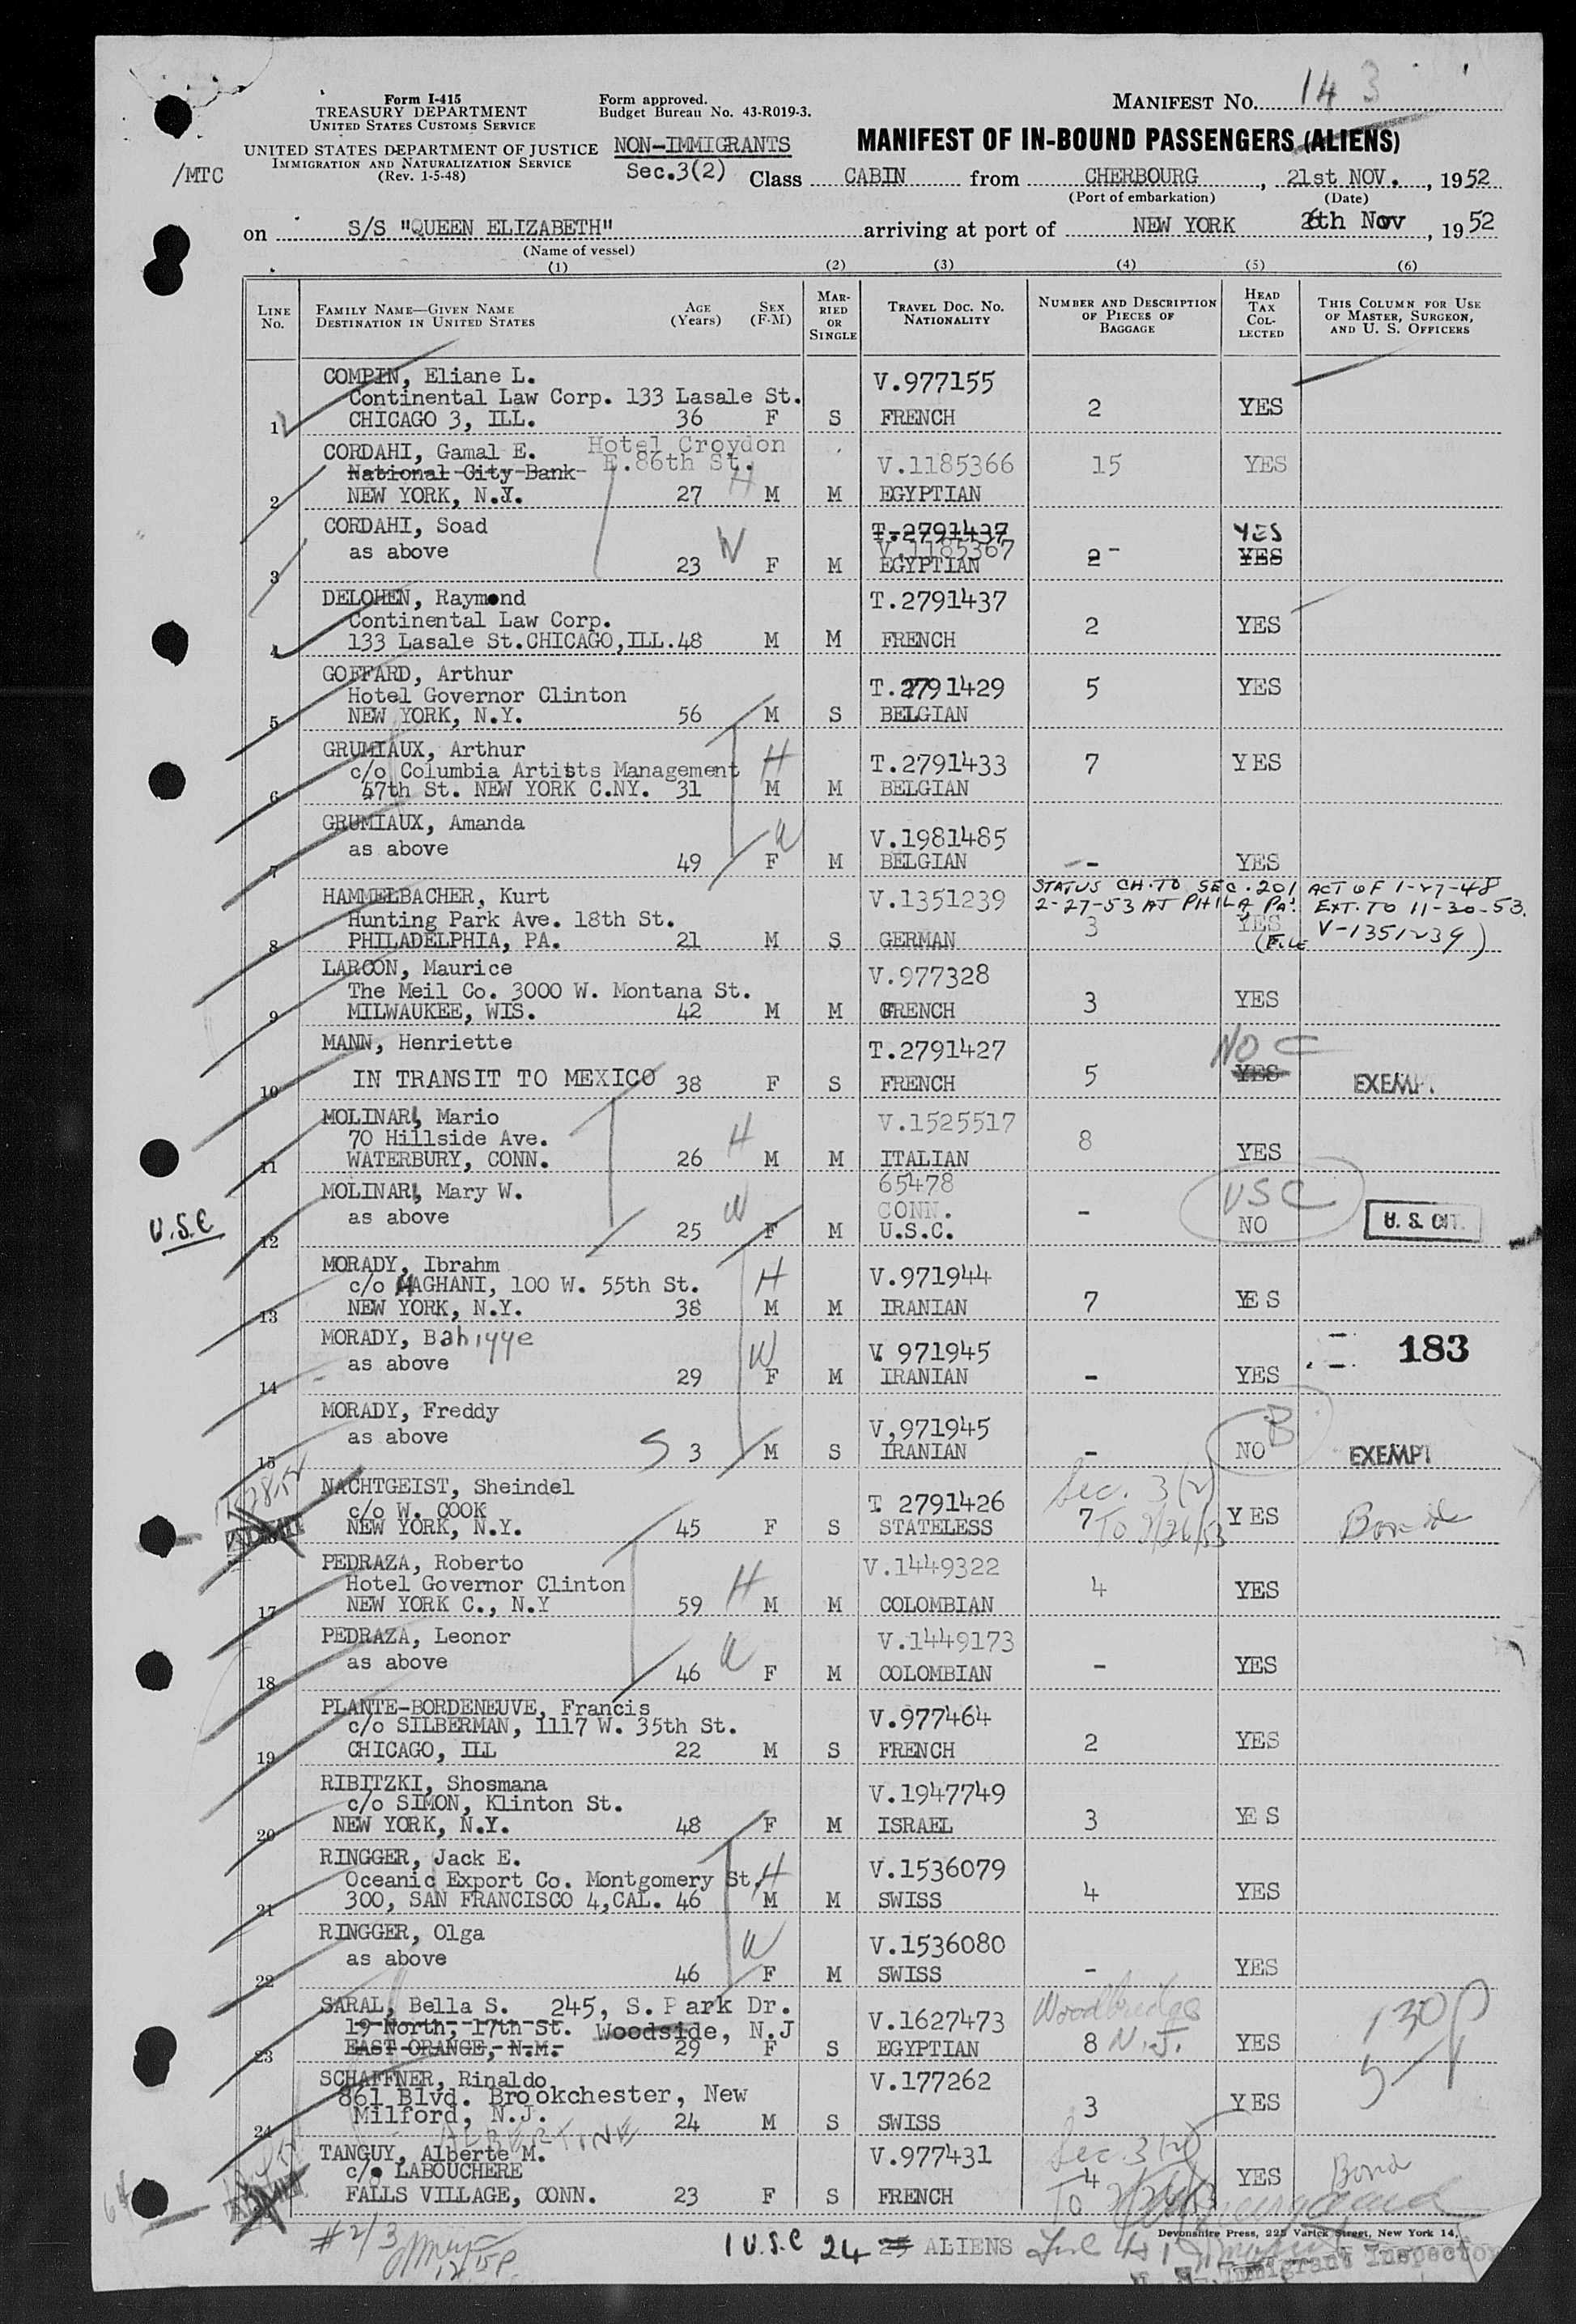 MANIFEST NO. 143
Form I-415
TREASURY DEPARTMENT
UNITED STATES CUSTOMS SERVICE
UNITED STATES DEPARTMENT OF JUSTICE
IMMIGRATION AND NATURALIZATION SERVICE
(Rev. 1-5-48)
Form approved.
Budget Bureau No. 43-R019-3.
NON-IMMIGRANTS
Sec.3(2)
/MTC
MANIFEST OF IN-BOUND PASSENGERS (ALIENS)
Class CABIN from CHERBOURG, 21st NOV., 1952
(Port of embarkation) (Date)
on S/S "QUEEN ELIZABETH" arriving at port of NEW YORK 26th Nov, 1952
(Name of vessel)
(1) (2) (3) (4) (5) (6)
LINE No.
FAMILY NAME—GIVEN NAME
DESTINATION IN UNITED STATES
AGE (Years)
SEX (F-M)
MARRIED OR SINGLE
TRAVEL DOC. NO. NATIONALITY
NUMBER AND DESCRIPTION OF PIECES OF BAGGAGE
HEAD TAX COLLECTED
THIS COLUMN FOR USE OF MASTER, SURGEON, AND U. S. OFFICERS
COMPIN, Eliane L. V.977155
Continental Law Corp. 133 Lasale St.
1 CHICAGO 3, ILL. 36 F S FRENCH 2 YES
CORDAHI, Gamal E. Hotel Croydon
National City Bank E.86th St. V.1185366 15 YES
2 NEW YORK, N.Y. 27 H M M EGYPTIAN
CORDAHI, Soad T.2791437 YES
as above W V.1185367 2 - YES
3 23 F M EGYPTIAN
DELOHEN, Raymond T.2791437
Continental Law Corp. 2 YES
4 133 Lasale St.CHICAGO,ILL.48 M M FRENCH
GOFFARD, Arthur T.2791429 5 YES
Hotel Governor Clinton
5 NEW YORK, N.Y. 56 M S BELGIAN
GRUMIAUX, Arthur H T.2791433 7 YES
c/o Columbia Artists Management
6 57th St. NEW YORK C.NY. 31 M M BELGIAN
GRUMIAUX, Amanda W V.1981485
as above
7 49 F M BELGIAN - YES
HAMMELBACHER, Kurt V.1351239 STATUS CH. TO SEC. 201 ACT OF 1-27-48
Hunting Park Ave. 18th St. 2-27-53 AT PHILA PA. EXT. TO 11-30-53.
8 PHILADELPHIA, PA. 21 M S GERMAN 3 YES (FILE V-1351239)
LARCON, Maurice V.977328
The Meil Co. 3000 W. Montana St. 3 YES
9 MILWAUKEE, WIS. 42 M M FRENCH
MANN, Henriette T.2791427 NO C
10 IN TRANSIT TO MEXICO 38 F S FRENCH 5 YES EXEMPT
MOLINARI, Mario V.1525517
70 Hillside Ave. H 8
11 WATERBURY, CONN. 26 M M ITALIAN YES
MOLINARI, Mary W. 65478 USC
as above W CONN. -
U.S.C 12 25 F M U.S.C. NO U. S. CIT.
MORADY, Ibrahm H V.971944
c/o MAGHANI, 100 W. 55th St.
13 NEW YORK, N.Y. 38 M M IRANIAN 7 YES
MORADY, Bahiyye W V. 971945 183
as above
14 29 F M IRANIAN - YES
MORADY, Freddy V,971945 B
as above
15 S 3 M S IRANIAN - NO EXEMPT
NACHTGEIST, Sheindel T. 2791426 Sec. 3(2)
c/o W. COOK 7 To 2/26/53 YES
NEW YORK, N.Y. 45 F S STATELESS
PEDRAZA, Roberto V.1449322
Hotel Governor Clinton H 4 YES
17 NEW YORK C., N.Y 59 M M COLOMBIAN
PEDRAZA, Leonor V.1449173
as above W - YES
18 46 F M COLOMBIAN
PLANTE-BORDENEUVE, Francis V.977464
c/o SILBERMAN, 1117 W. 35th St.
19 CHICAGO, ILL 22 M S FRENCH 2 YES
RIBITZKI, Shosmana V.1947749
c/o SIMON, Klinton St.
20 NEW YORK, N.Y. 48 F M ISRAEL 3 YES
RINGGER, Jack E. H V.1536079
Oceanic Export Co. Montgomery St.
21 300, SAN FRANCISCO 4,CAL. 46 M M SWISS 4 YES
RINGGER, Olga W V.1536080
as above
22 46 F M SWISS - YES
SARAL, Bella S. 245, S. Park Dr. V.1627473 Woodbridge
19 North, 17th St. Woodside, N.J
23 EAST ORANGE, N.M. 29 F S EGYPTIAN 8 N.J. YES
SCHAFFNER, Rinaldo V.177262
861 Blvd. Brookchester, New
24 Milford, N.J. 24 M S SWISS 3 YES
ALBERTINE
TANGUY, Alberte M. V.977431 Sec. 3(2)
c/o LABOUCHERE 4 YES Bond
FALLS VILLAGE, CONN. 23 F S FRENCH To
Devonshire Press, 225 Varick Street, New York 14,
#213
1 U.S.C 24 25 ALIENS
Immigrant Inspector